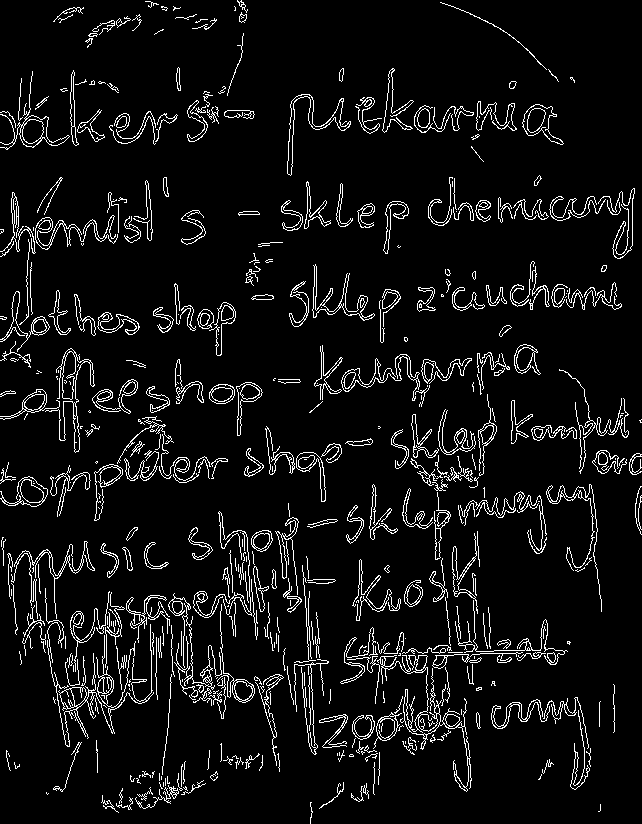 baker's - piekarnia
chemist's - sklep chemiczny
clothes shop - sklep z ciuchami
coffee shop - kawiarnia
computer shop - sklep komput
music shop - sklep muzyczny
newsagent's - kiosk
pet shop - sklep z zab.
zoologiczny